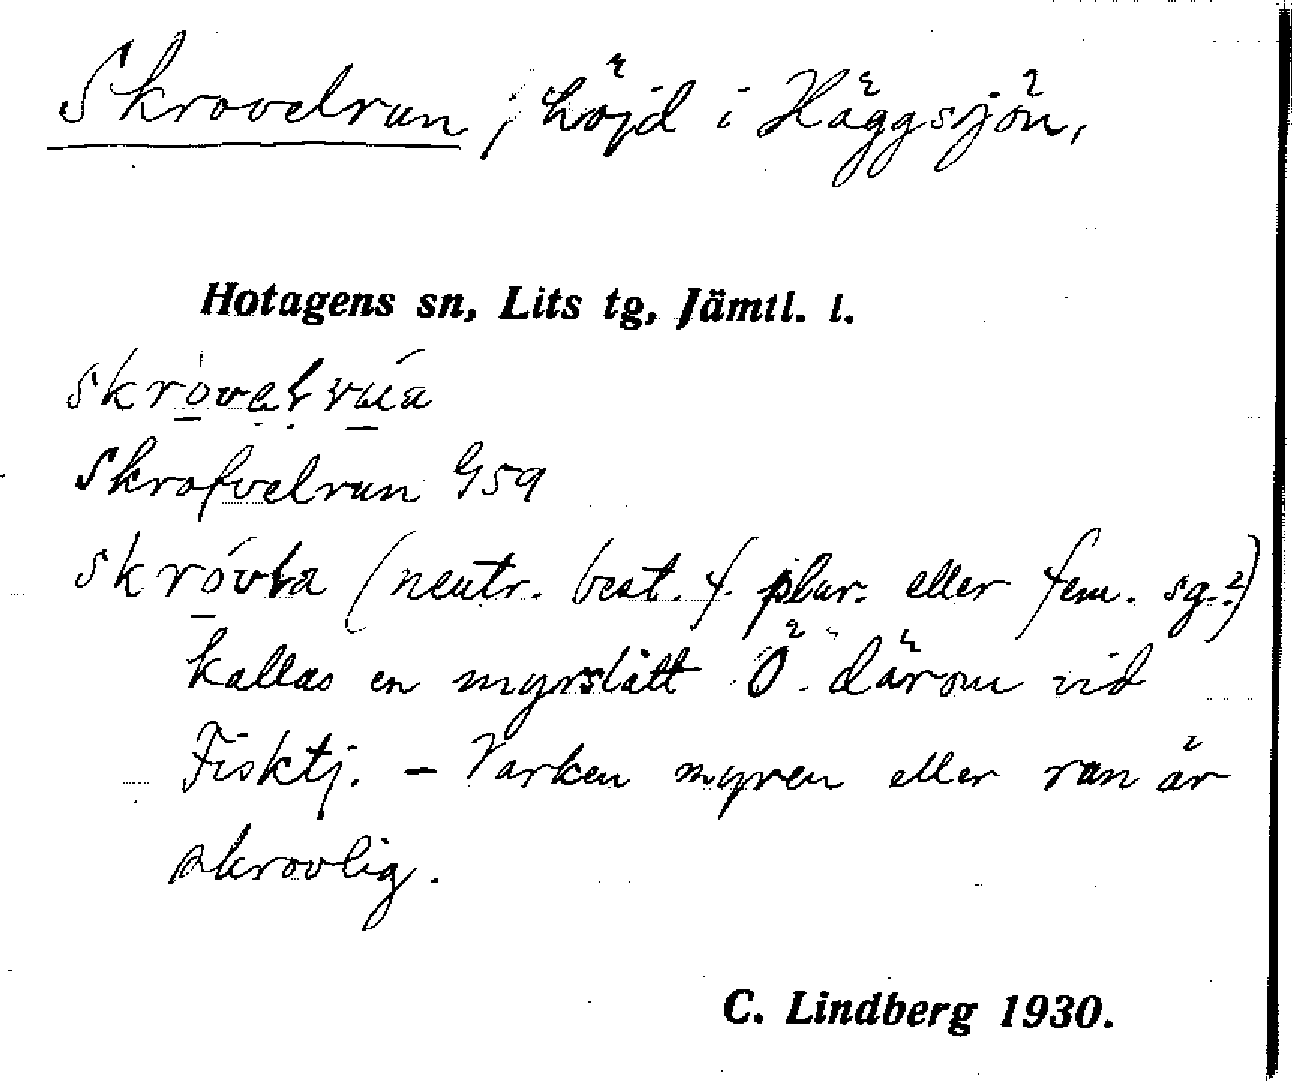 Skrovelrun, höjd i Häggsjön,
Hotagens sn, Lits tg, Jämtl. l.
Skrofvelrun G59
(neutr. best. f. plur. eller fem. sg.?)
kallas en myrslått Ö. därom vid
Fisktj. – Varken myren eller run är
skrovlig.
C. Lindberg 1930.